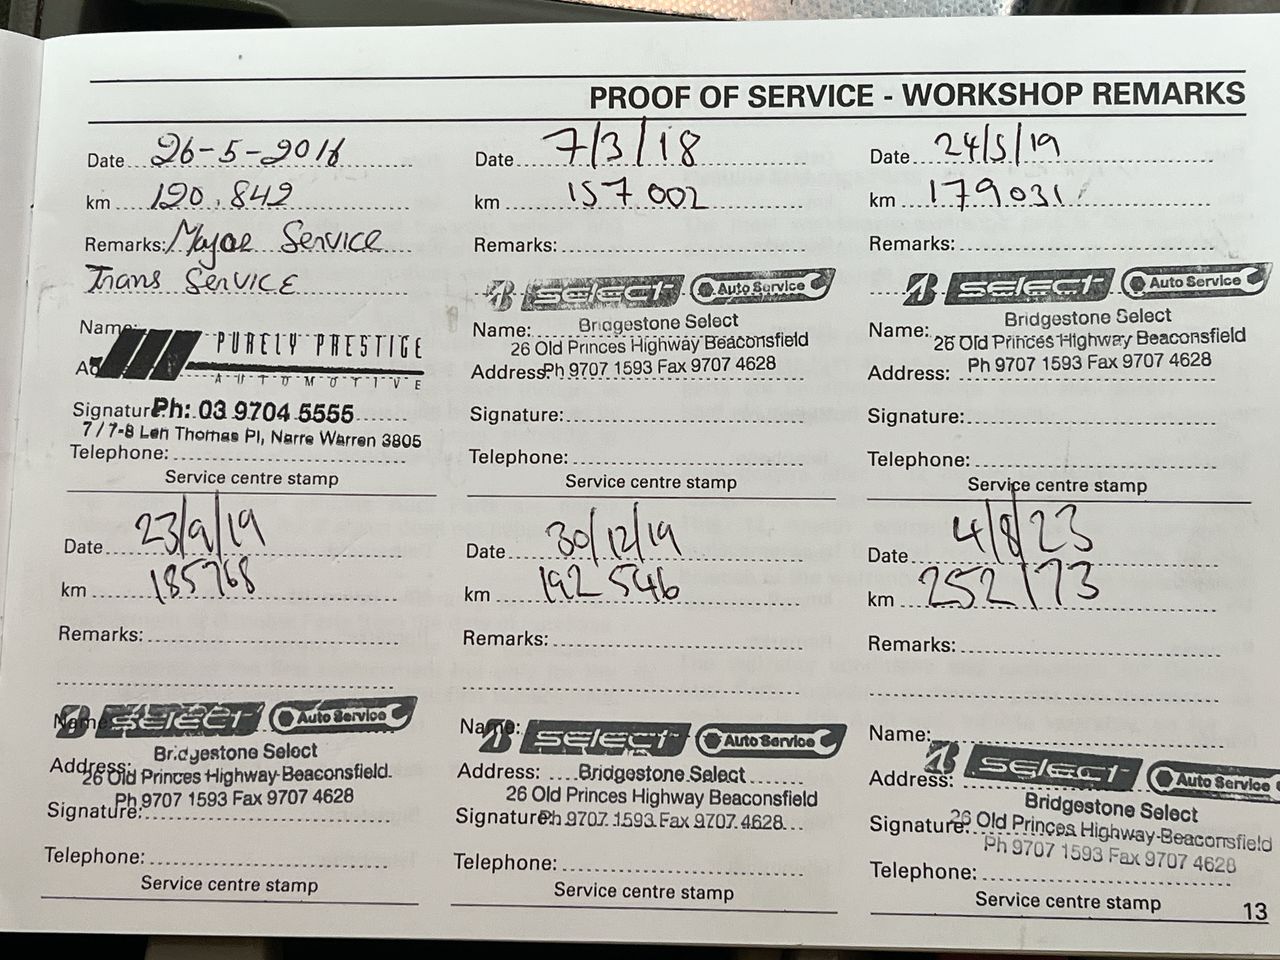 PROOF OF SERVICE - WORKSHOP REMARKS
Date 26-5-2016
km 120.842
Remarks: Major Service
Trans Service
Name:
PURELY PRESTIGE
AUTOMOTIVE
Signature Ph: 03 9704 5555
7/7-8 Len Thomas Pl, Narre Warren 3805
Telephone:
Service centre stamp
Date 7/3/18
km 157.002
Remarks:
SELECT Auto Service
Name: Bridgestone Select
26 Old Princes Highway Beaconsfield
Address: Ph 9707 1593 Fax 9707 4628
Signature:
Telephone:
Service centre stamp
Date 24/5/19
km 179031
Remarks:
SELECT Auto Service
Bridgestone Select
Name: 26 Old Princes Highway Beaconsfield
Address: Ph 9707 1593 Fax 9707 4628
Signature:
Telephone:
Service centre stamp
Date 23/9/19
km 185768
Remarks:
Name: SELECT Auto Service
Bridgestone Select
Address: 26 Old Princes Highway Beaconsfield
Ph 9707 1593 Fax 9707 4628
Signature:
Telephone:
Service centre stamp
Date 30/12/19
km 192546
Remarks:
Name: SELECT Auto Service
Address: Bridgestone Select
26 Old Princes Highway Beaconsfield
Signature: Ph 9707 1593 Fax 9707 4628
Telephone:
Service centre stamp
Date 4/8/23
km 252173
Remarks:
Name:
SELECT Auto Service
Address:
Bridgestone Select
Signature: 26 Old Princes Highway Beaconsfield
Ph 9707 1593 Fax 9707 4628
Telephone:
Service centre stamp
13